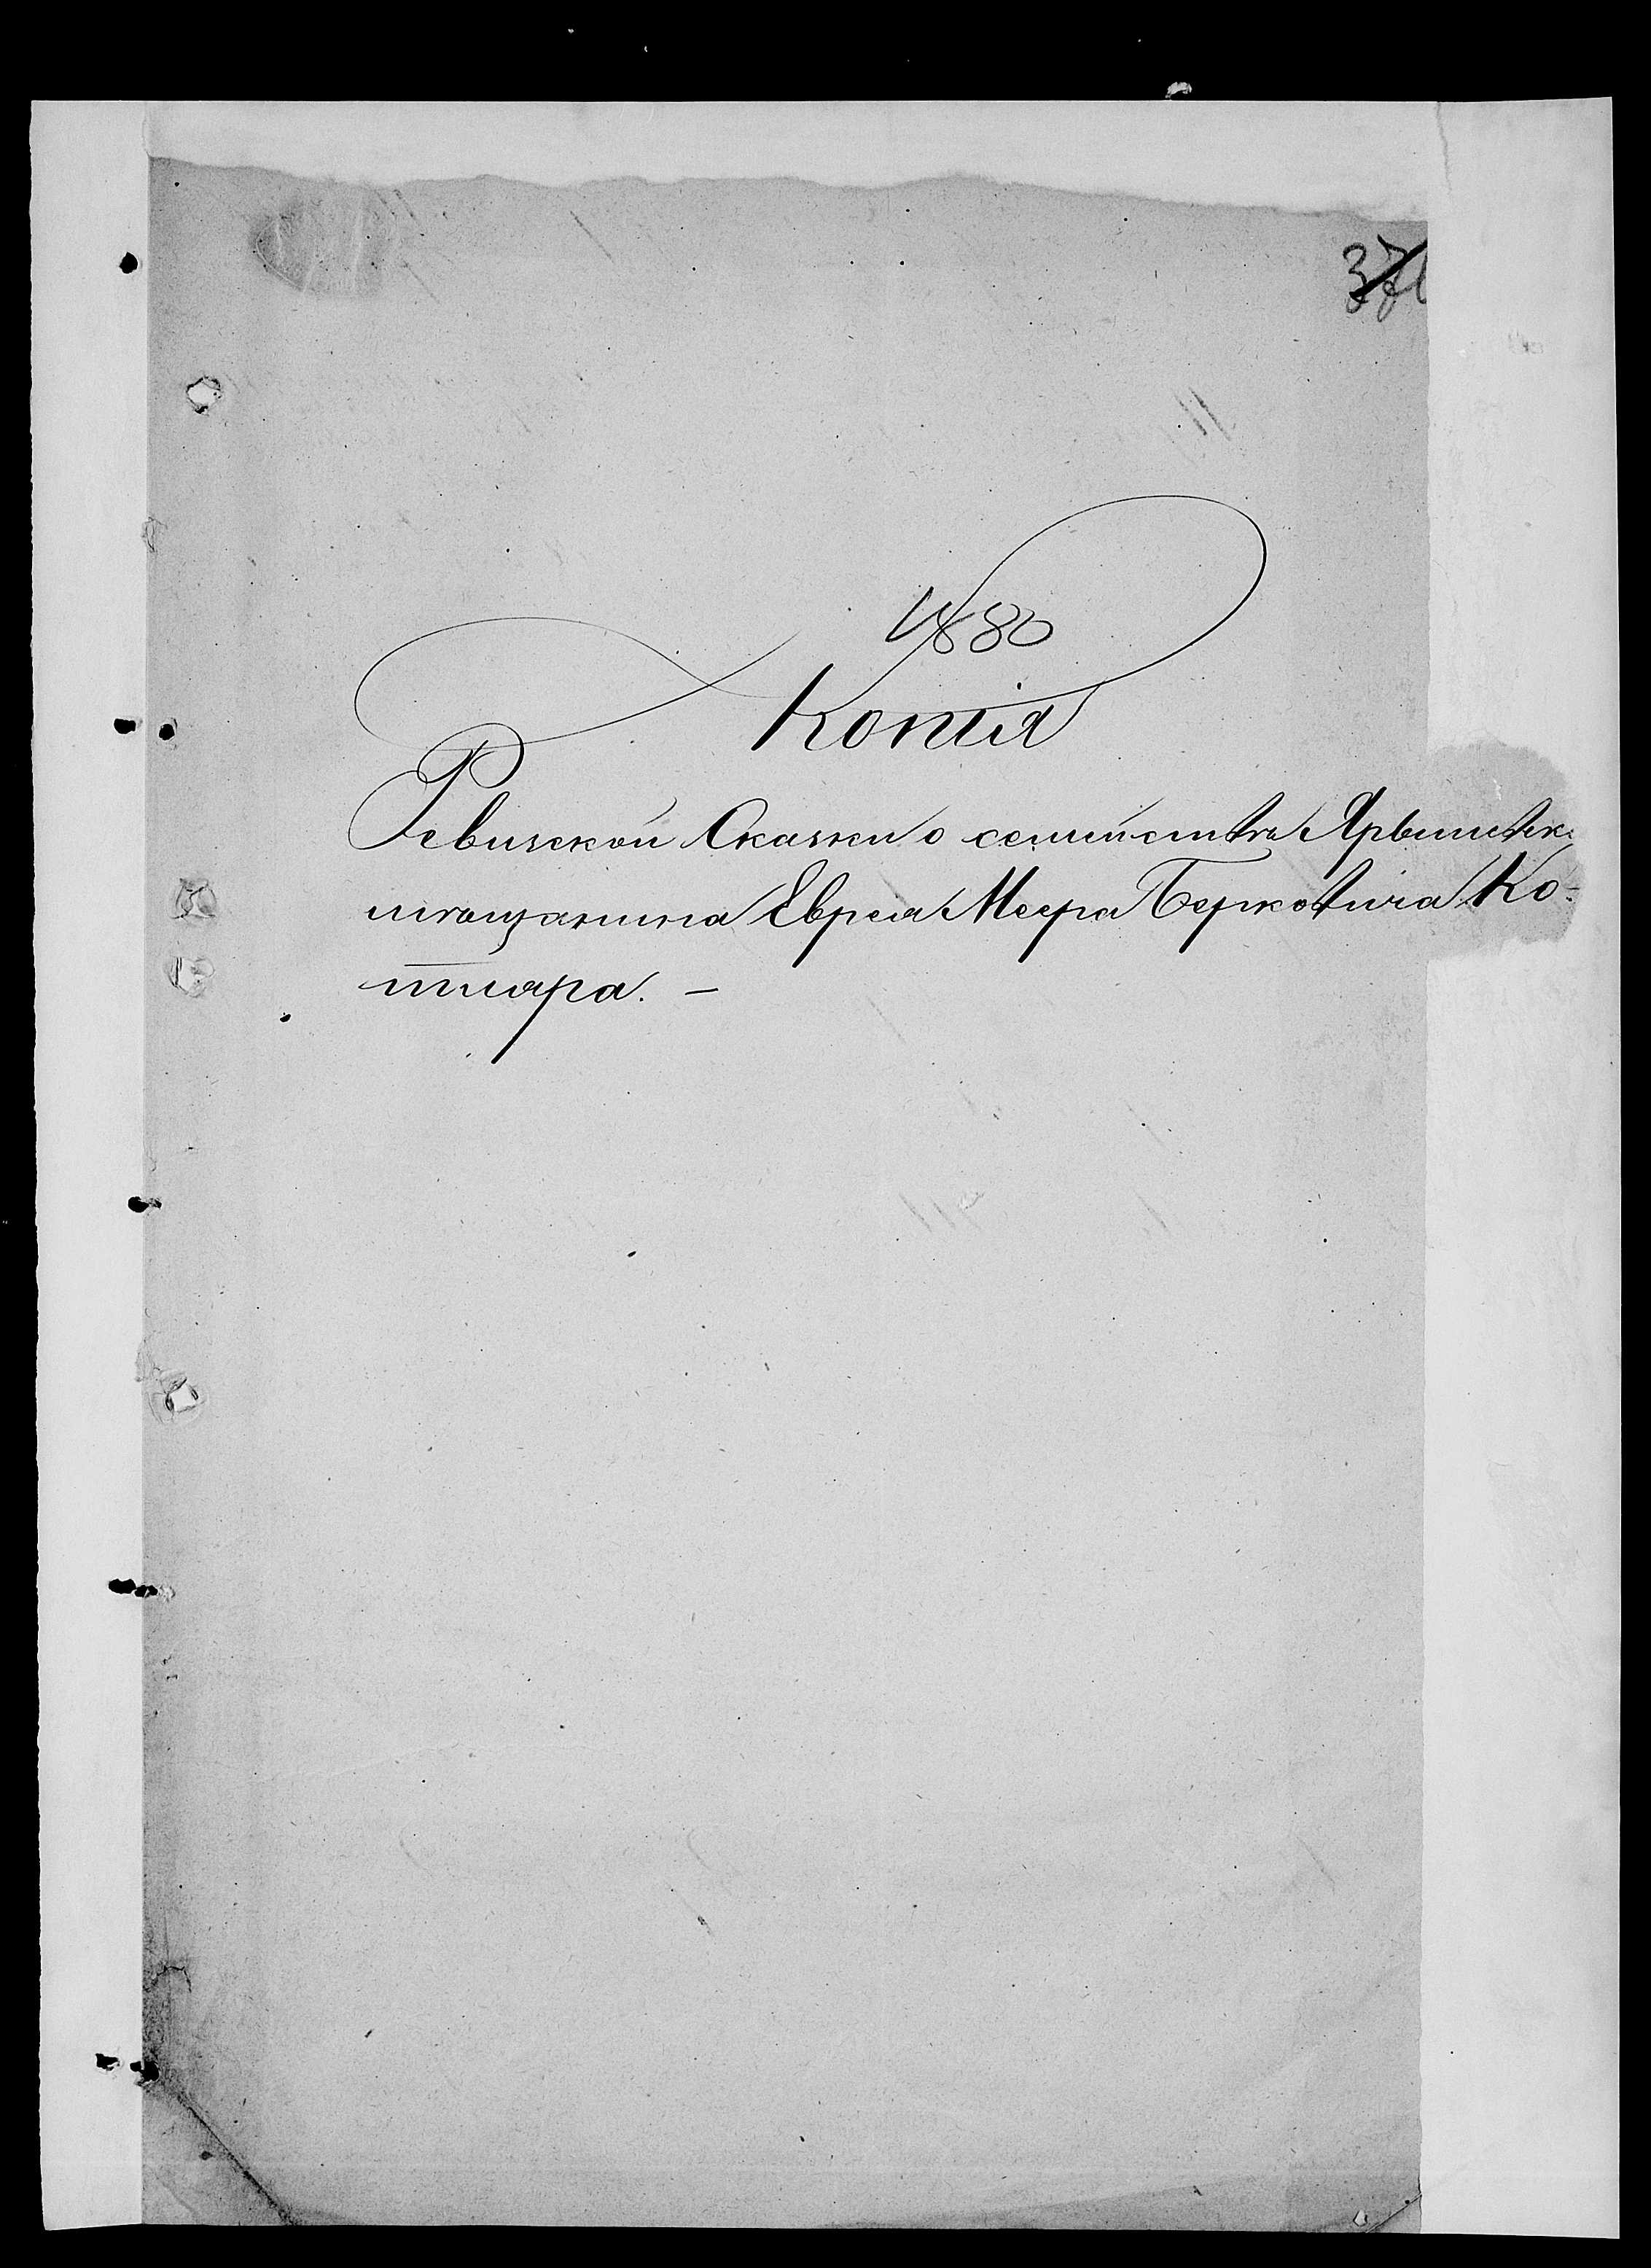 371
1880
Копія
Ревизской Сказки о семействѣ Ярышевск.
мѣщанина Еврея Меера Берковича Ко-
тляра. —